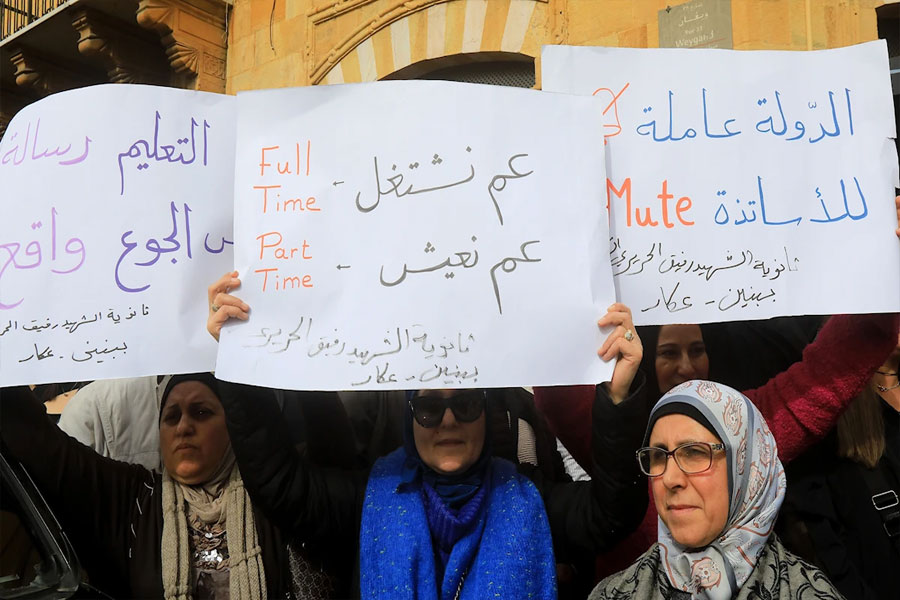 التعليم رسالة
الجوع واقع
ثانوية الشهيد رفيق
ببنين - عكار
عم نشتغل - Full Time
عم نعيش - Part Time
ثانوية الشهيد رفيق الحريري
ببنين - عكار
الدّولة عاملة
للأساتذة Mute
ثانوية الشهيد رفيق الحريري
ببنين - عكار
Weygand